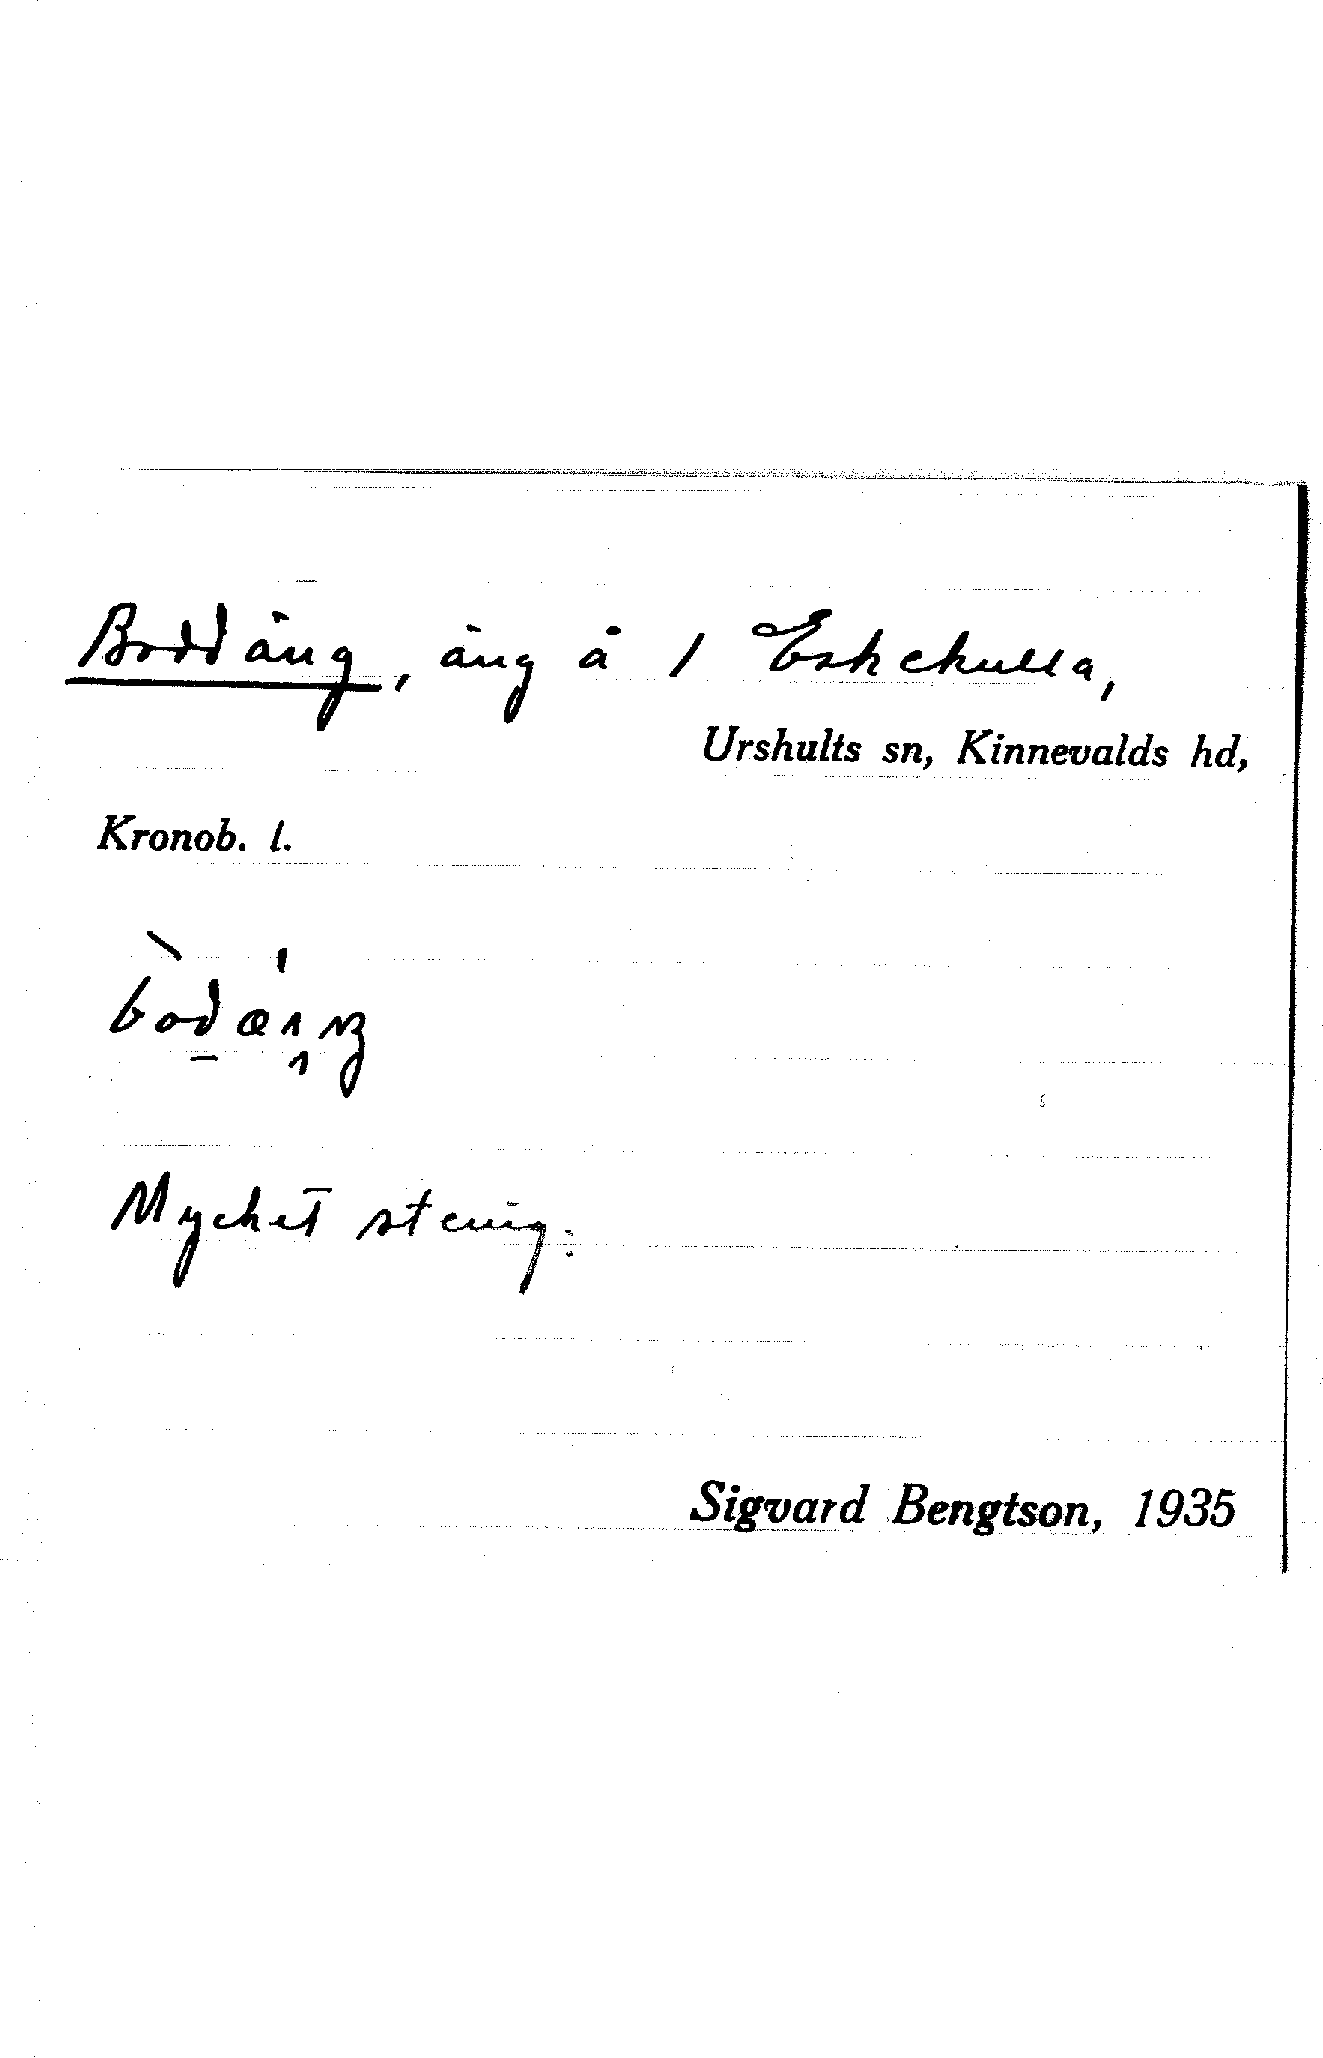 Boddäng, äng å 1 Eskekulla,
Urshults sn, Kinnevalds hd,
Kronob. l.
Mycket stenig.
Sigvard Bengtson, 1935